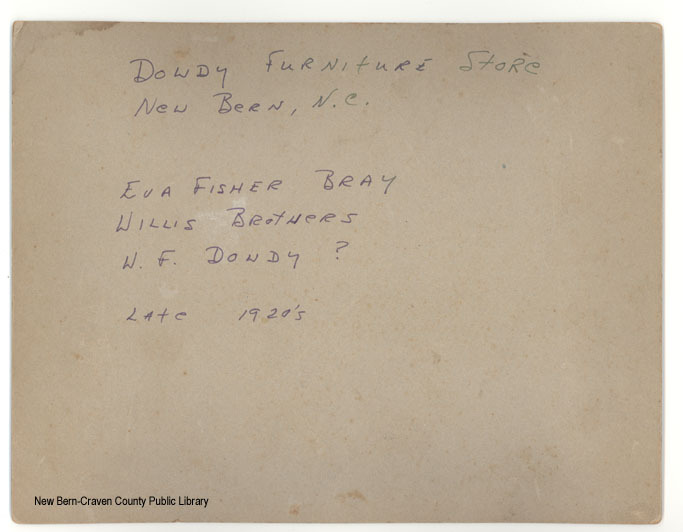 Dowdy Furniture Store
New Bern, N.C.
Eva Fisher Bray
Willis Brothers
W. F. Dowdy ?
Late 1920's
New Bern-Craven County Public Library